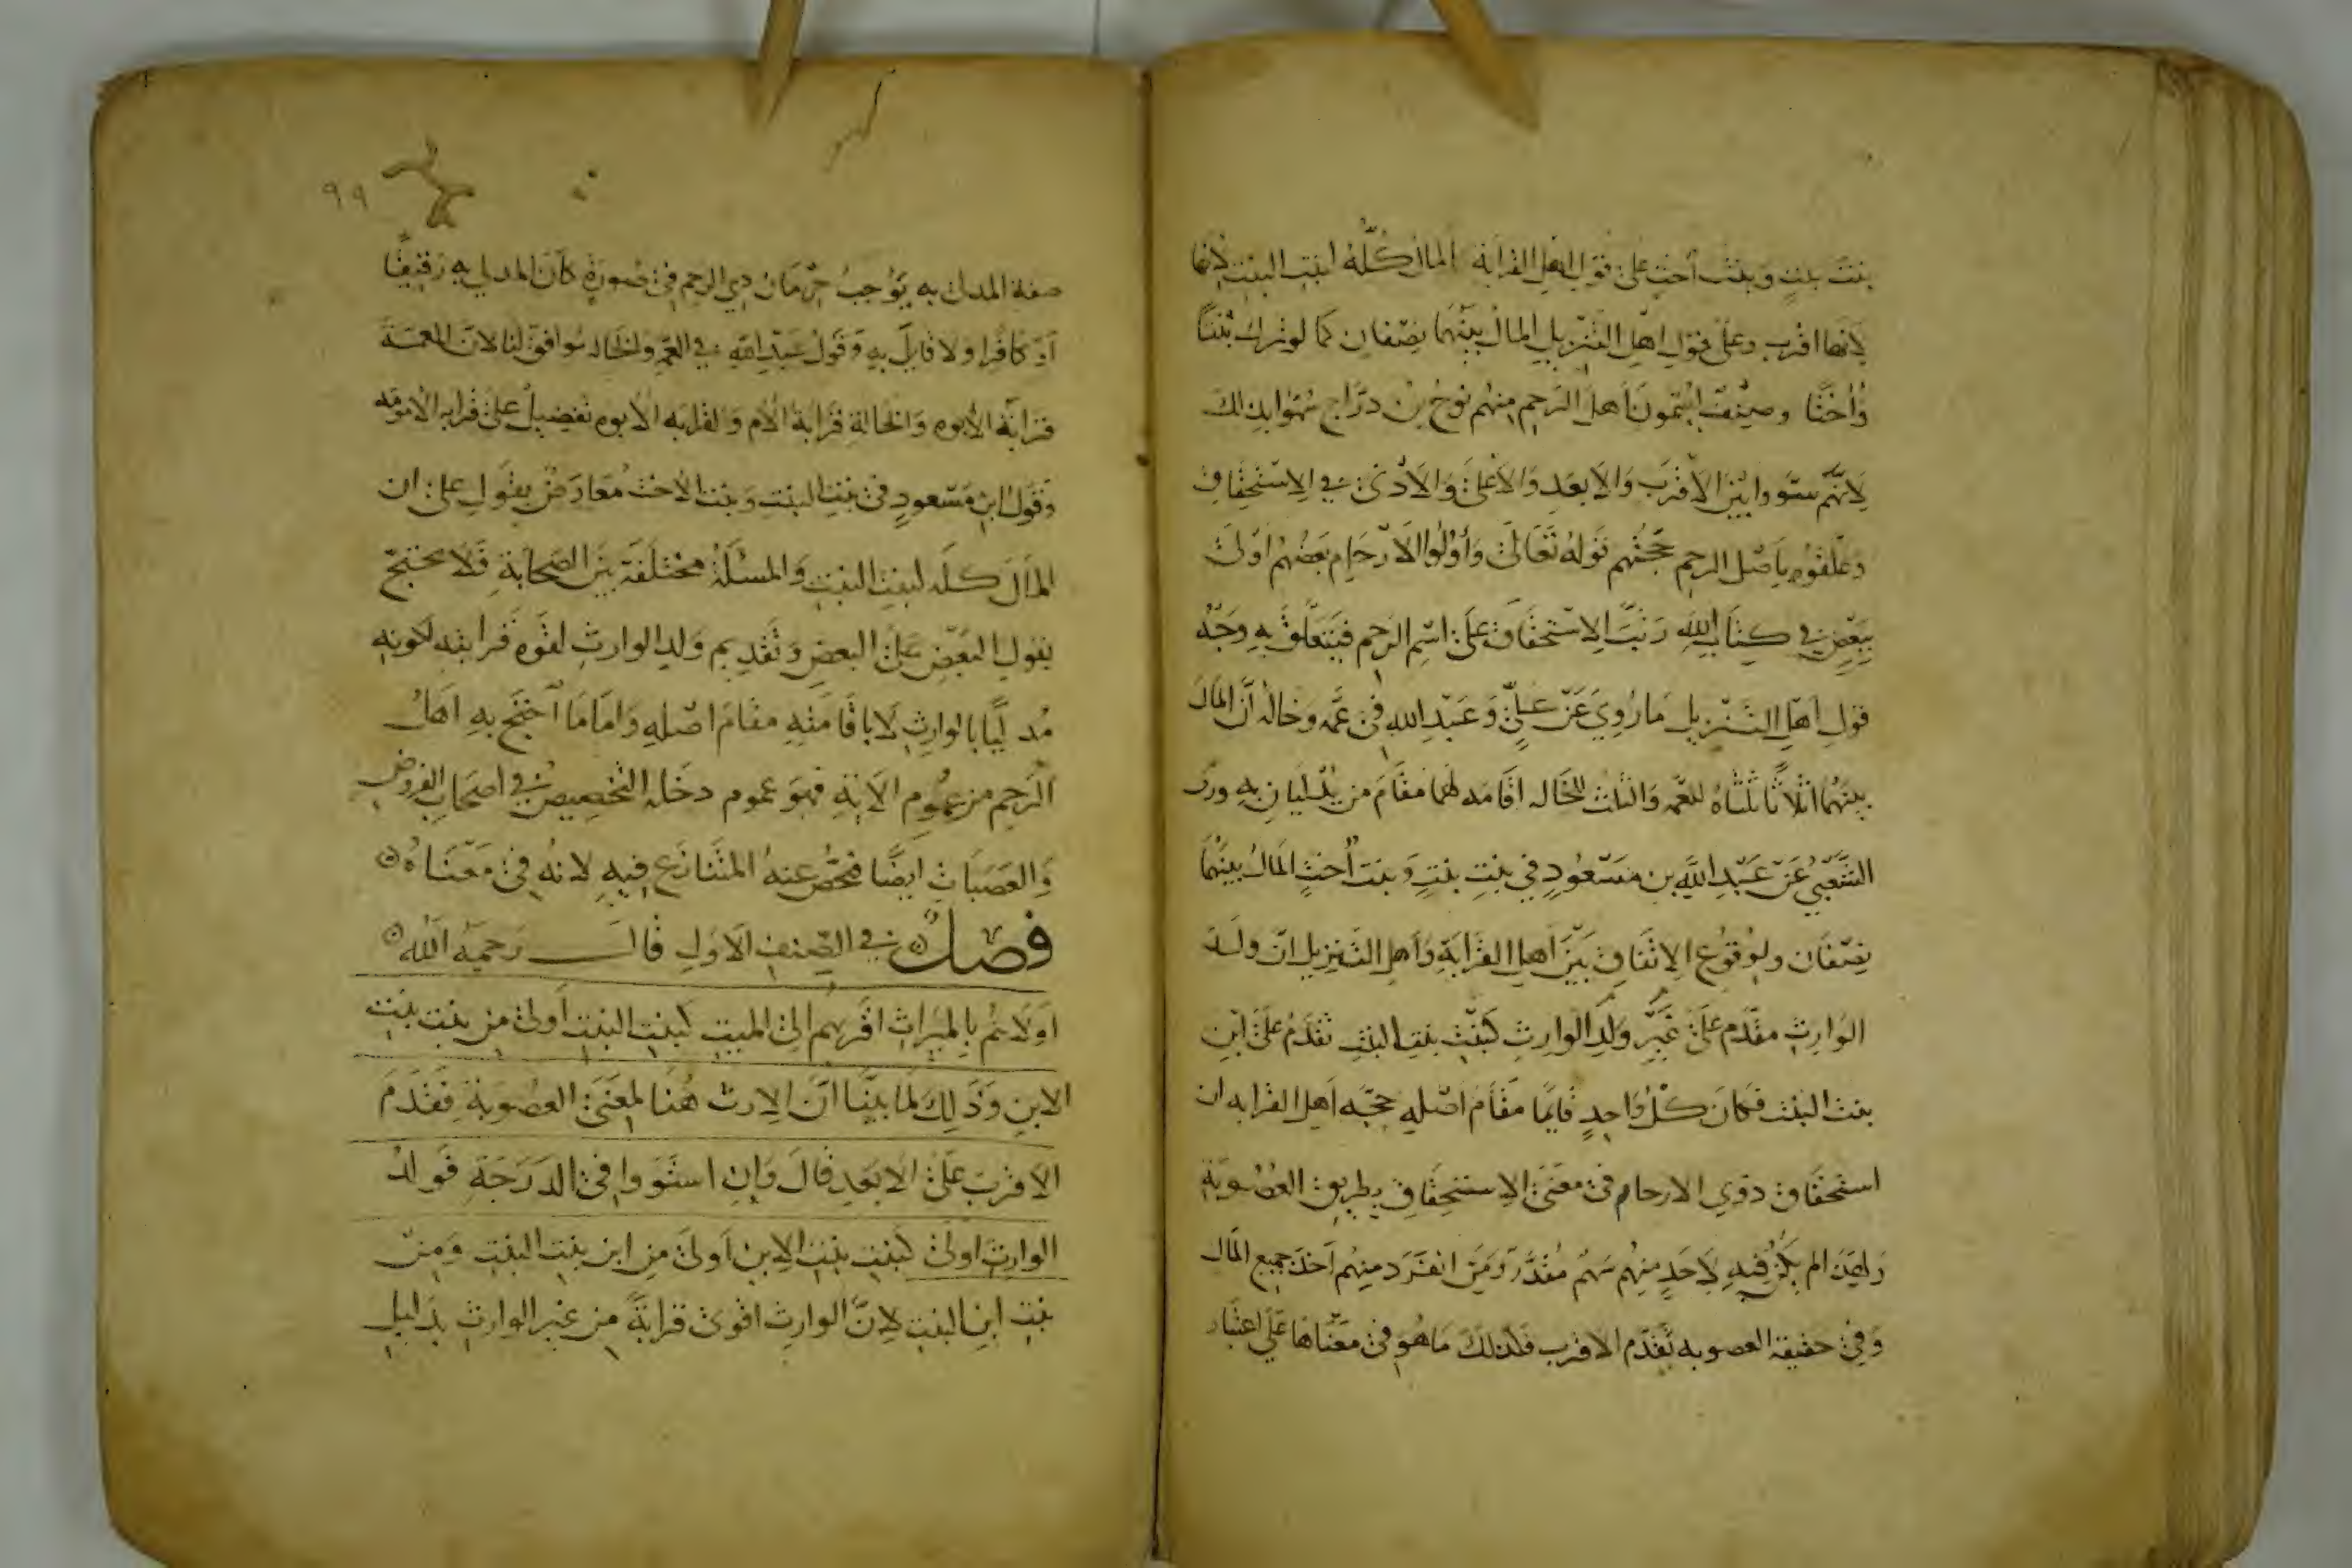 بنت بنتٍ وبنت أختٍ على قول اهل القرابة المال كلّه لبنت البنت لانها
لانها اقرب وعلى قول اهل التنزيل المال بينهما نصفان كما لو ترك بنتًا
وأختًا وصنف يسمون اهل الرحم منهم نوح بن درّاج سُمّوا بذلك
لانّهم سوّوا بين الاقرب والابعد والاعلى والادنى في الاستحقاق
وعلّقوه باصل الرحم حجّتهم قوله تعالى وأولوا الارحام بعضهم اولى
ببعض في كتاب الله رتّب الاستحقاق على اسم الرحم فيتعلّق به وجه
قول اهل التنزيل ما روي عن عليّ وعبد الله في عمّه وخاله أنّ المال
بينهما اثلاثًا ثلثاه للعمّه والثلث للخاله اقامه لهما مقام من يدليان به وروى
الشّعبيّ عن عبد الله بن مسعودٍ في بنت بنتٍ وبنت أختٍ المال بينهما
نصفان ولوقوع الاتفاق بين اهل القرابة واهل التنزيل انّ ولد
الوارث مقدّم على غير ولد الوارث كبنت بنت البنت تقدم على ابن
بنت البنت فكان كلّ واحدٍ قايمًا مقام اصله حجّه اهل القرابه ان
استحقاق ذوي الارحام في معنى الاستحقاق بطريق العصوبة
ولهذا لم يكن فيه لاحدٍ منهم سهم مقدّر ومن انفرد منهم أخذ جميع المال
وفي حقيقة العصوبه تقدّم الاقرب فكذلك ما هو في معناها على اعتبار
٩٩
صفة المدلى به يوجب حرمان ذي الرحم في صورةٍ كان المدلي به رقيقًا
او كافرا ولا قايل به وقول عبد الله في العمّه والخاله موافق لنا لان العمّة
قرابة الأبوه والخالة قرابة الأم ولقرابه الابوه تفضيل على قرابه الأمومه
وقول ابن مسعودٍ في بنت البنت وبنت الأخت معارض بقول علي ان
المال كلّه لبنت البنت والمسئلة مختلفة بين الصحابة فلا يحتجّ
بقول البعض على البعض وتقديم ولد الوارث لقوه قرابته لكونه
مدليًا بالوارث لا باقامته مقام اصله واما ما احتج به اهل
الرحم من عموم الاية فهو عموم دخله التخصيص في اصحاب الفروض
والعصبات ايضًا فخصّ عنه المتنازع فيه لانه في معناه
فصل في الصنف الاول قال رحمه الله
اولاهم بالميراث اقربهم الى الميت كبنت البنت اولى من بنت بنت
الابن وذلك لما بيّنّا انّ الارث هنا لمعنى العصوبة فقدم
الاقرب على الابعد قال وان استووا في الدرجة فولد
الوارث اولى كبنت بنت الابن اولى من ابن بنت البنت ومن
بنت ابن البنت لانّ الوارث اقوى قرابةً من غير الوارث بدليل